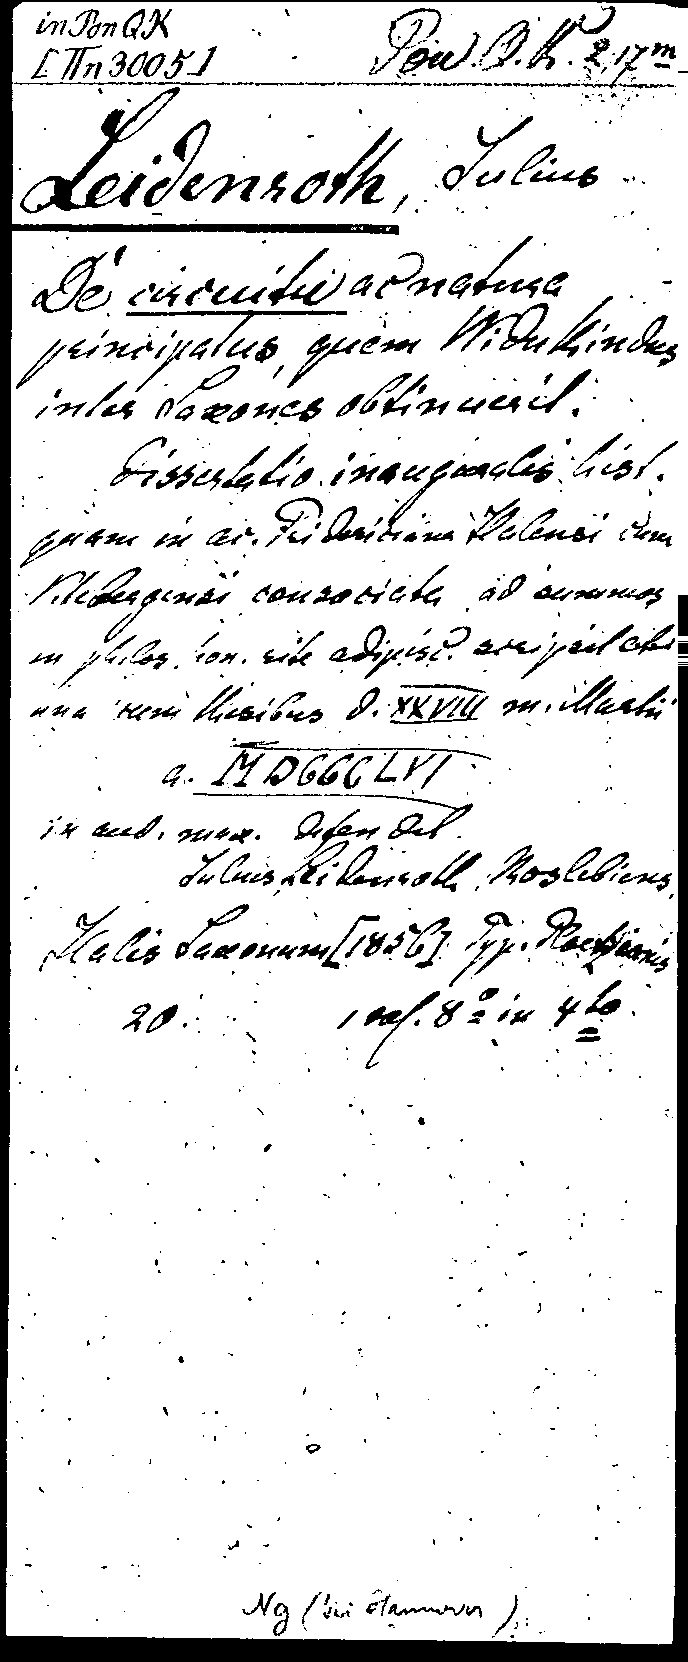 in Pon QK
[Πn 3005]
Pon Q.K. 2, 17m
Leidenroth, Julius
De circuitu ac natura
principatus, quem Widukindus
inter Saxones obtinuerit.
Dissertatio inauguralis hist.
quam in ac. Fridericiana Halensi cum
Vitebergensi consociata ad summos
in philos. hon. rite adipisc.
una cum thesibus d. XXVIII m. Martii
a. MDCCCLVI
in aud. max. defendet
Julius Leidenroth, Roslebiens.
Halis Saxonum [1856] Typ. Ploetzianis
20. 8° in 4to.
Ng (bei Hannover)